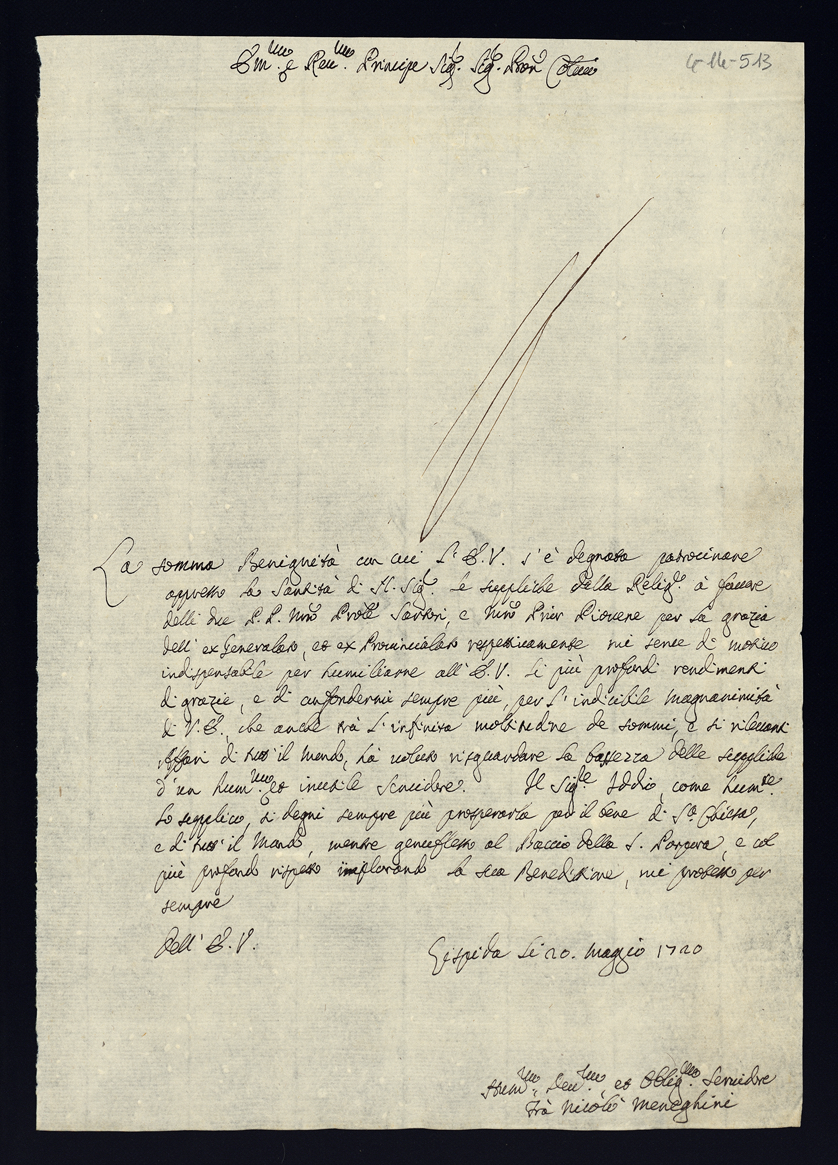 Em.mo e Rev.mo Principe Sig.r Sig.r Pron Col.mo
4-14-513
La somma Benignità con cui L'E.V. s'è degnata patrocinare
appresso la Santità di N. Sig.re le suppliche della Relig.e à favore
delli due P.P. Mro Sartori, e Mro Prior Piovene per la grazia
dell'exGeneralato, et exProvincialato respettivamente mi serve di motivo
indispensabile per humiliarne all'E.V. li più profondi rendimenti
di grazie, e di confondermi sempre più, per l'indicibile magnanimità
di V.E., che anche trà l'infinita moltitudine de sommi, e si rilevanti
Affari di tutt'il Mondo, hà voluto risguardare la bassezza delle suppliche
d'un hum.mo et inutile Servidore. Il Sig.re Iddio, come hum.te
lo supplico, si degni sempre più prosperarla per il bene di S.a Chiesa,
e di tutt'il Mondo, mentre genuflesso al Baccio della S. Porpora, e col
più profondo rispetto implorando la sua Benedizione, mi protesto per
sempre
Dell'E.V.
li 20. Maggio 1720
Hum.mo Dev.mo et Oblig.mo Servidore
Frà Nicolò Meneghini